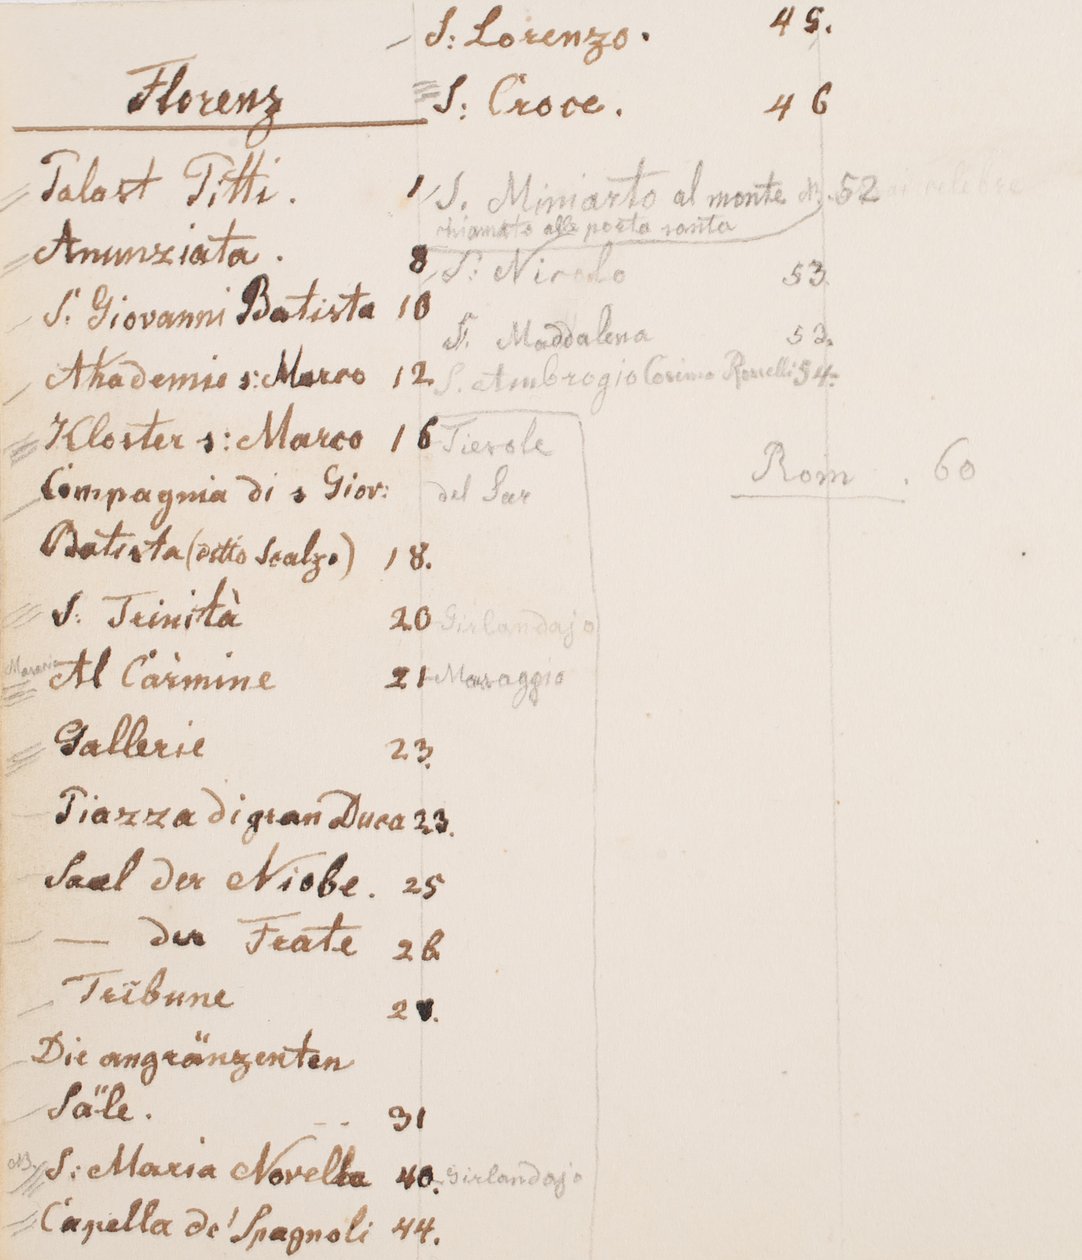 Florenz
Palast Pitti. 1
Anunziata. 8
S: Giovanni Batista 10
Akademie s: Marco 12
Kloster s: Marco 16
Compagnia di s Giov:
Batista (ditto Scalzo) 18.
S: Trinità 20 Girlandajo
Al Carmine 21 Masaggio
Gallerie 23.
Piazza di gran Duca 23.
Saal der Niobe. 25
— der Frate 26
Tribune
Die angränzenten
Säle. 31
NB S: Maria Novella 40. Girlandajo
Capella de' Spagnoli 44.
S: Lorenzo. 45.
S: Croce. 46
S. Miniarto al monte 52
chiamato alle porta santa
S: Nicolo 53
S. Maddalena 53.
S. Ambrogio Cosimo Rosselli 54.
Fiesole
del Sar
Rom . 60